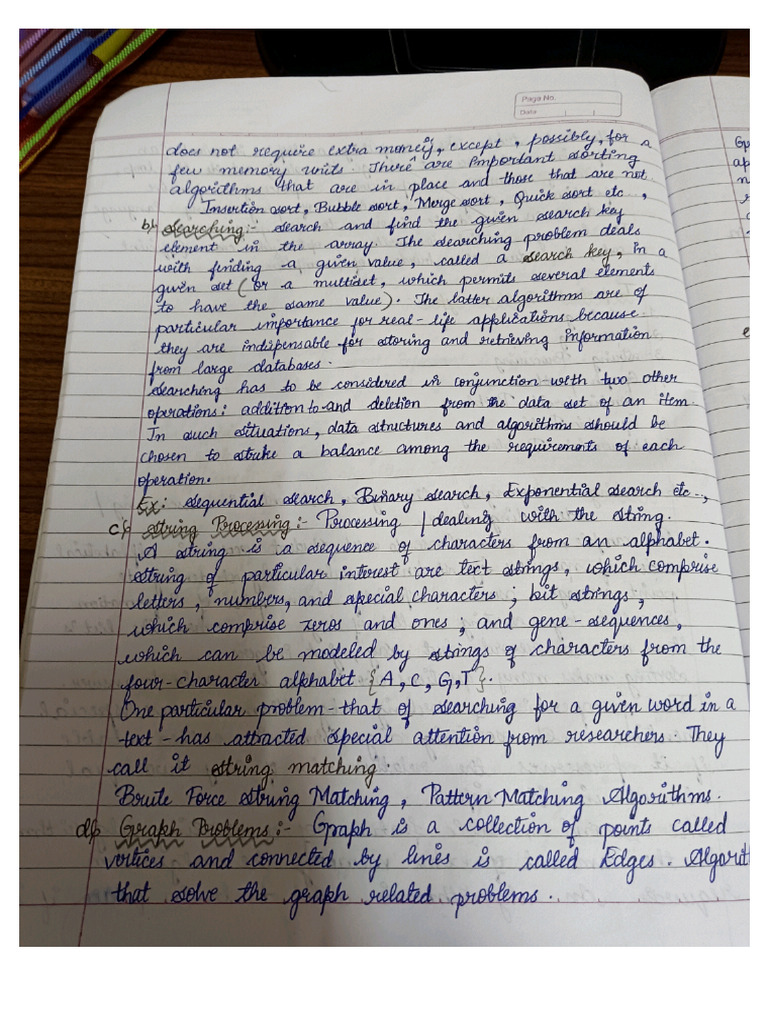 Page No.
Date
does not require extra money, except, possibly, for a
few memory units. There are important sorting
algorithms that are in place and those that are not
Insertion sort, Bubble sort, Merge sort, Quick sort etc,
b) Searching:- search and find the given search key
element in the array. The searching problem deals
with finding a given value, called a search key, in a
given set (or a multiset, which permits several elements
to have the same value). The latter algorithms are of
particular importance for real-life applications because
they are indipensable for storing and retrieving information
from large databases.
searching has to be considered in conjunction with two other
operations: addition to and deletion from the data set of an item.
In such situations, data structures and algorithms should be
chosen to stuke a balance among the requirements of each
operation.
Ex: sequential search, Binary search, Exponential search etc..,
c) string Processing:- Processing / dealing with the string.
A string is a sequence of characters from an alphabet.
string of particular interest are tect strings, which comprise
letters, numbers, and special characters; bit strings,
which comprise zeros and ones; and gene-sequences,
which can be modeled by strings of characters from the
four-character alphabet {A, C, G, T}.
One particular problem-that of searching for a given word in a
text-has attracted special attention from researchers. They
call it string matching
Brute Force string Matching, Pattern Matching Algorithms.
d) Graph Problems:- Graph is a collection of points called
vertices and connected by lines is called Edges. Algorit
that solve the graph related problems.